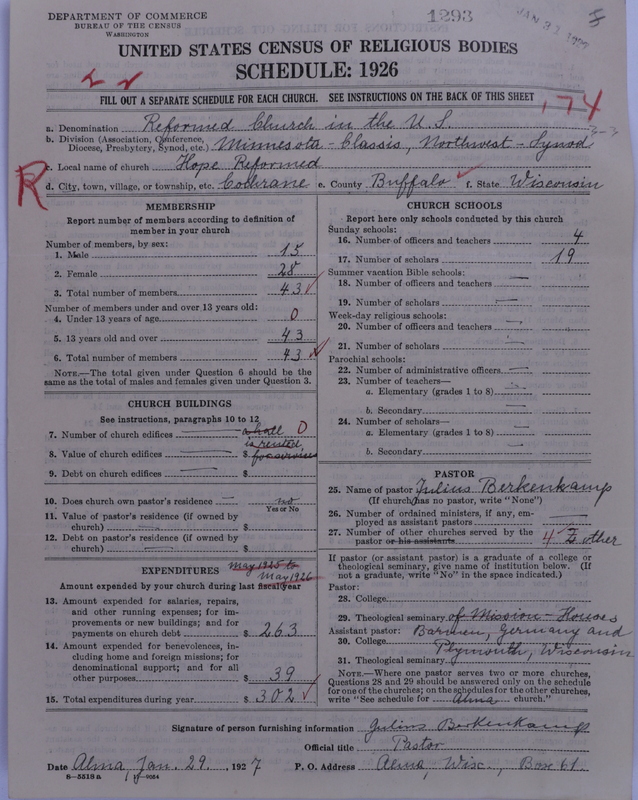 DEPARTMENT OF COMMERCE
BUREAU OF THE CENSUS
WASHINGTON
1293
UNITED STATES CENSUS OF RELIGIOUS BODIES
SCHEDULE: 1926
FILL OUT A SEPARATE SCHEDULE FOR EACH CHURCH. SEE INSTRUCTIONS ON THE BACK OF THIS SHEET
174
a. Denomination Reformed Church in the U.S.
b. Division (Association, Conference, Diocese, Presbytery, Synod, etc.) Minnesota-Classis, Northwest-Synod
3-3
c. Local name of church Hope Reformed
R
d. City, town, village, or township, etc. Cochrane e. County Buffalo f. State Wisconsin
MEMBERSHIP
Report number of members according to definition of
member in your church
Number of members, by sex:
1. Male 15
2. Female 28
3. Total number of members 43
Number of members under and over 13 years old:
4. Under 13 years of age 0
5. 13 years old and over 43
6. Total number of members 43
NOTE.—The total given under Question 6 should be
same as the total of males and females given under Question 3.
CHURCH BUILDINGS
See instructions, paragraphs 10 to 12
7. Number of church edifices a hall 0
8. Value of church edifices $ is rented for services
9. Debt on church edifices $
10. Does church own pastor's residence no
Yes or No
11. Value of pastor's residence (if owned by
church) $
12. Debt on pastor's residence (if owned by
church) $
EXPENDITURES May 1925 to May 1926
Amount expended by your church during last fiscal year
13. Amount expended for salaries, repairs,
and other running expenses; for im-
provements or new buildings; and for
payments on church debt $ 263
14. Amount expended for benevolences, in-
cluding home and foreign missions; for
denominational support; and for all
other purposes $ 39
15. Total expenditures during year $ 302
CHURCH SCHOOLS
Report here only schools conducted by this church
Sunday schools:
16. Number of officers and teachers 4
17. Number of scholars 19
Summer vacation Bible schools:
18. Number of officers and teachers
19. Number of scholars
Week-day religious schools:
20. Number of officers and teachers
21. Number of scholars
Parochial schools:
22. Number of administrative officers
23. Number of teachers—
a. Elementary (grades 1 to 8)
b. Secondary
24. Number of scholars—
a. Elementary (grades 1 to 8)
b. Secondary
PASTOR
25. Name of pastor Julius Berkenkamp
(If church has no pastor, write "None")
26. Number of ordained ministers, if any, em-
ployed as assistant pastors
27. Number of other churches served by the
pastor or his assistants 4 other
If pastor (or assistant pastor) is a graduate of a college or
theological seminary, give name of institution below. (If
not a graduate, write "No" in the space indicated.)
Pastor:
28. College
29. Theological seminary of Mission-Houses
Assistant pastor: Barmen, Germany and
30. College Plymouth, Wisconsin
31. Theological seminary
NOTE.—Where one pastor serves two or more churches,
Questions 28 and 29 should be answered only on the schedule
for one of the churches; on the schedules for the other churches,
write "See schedule for Alma church."
Signature of person furnishing information Julius Berkenkamp
Official title Pastor
Date Alma, Jan. 29, 1927 P. O. Address Alma, Wisc., Box 61.
8—5518 a